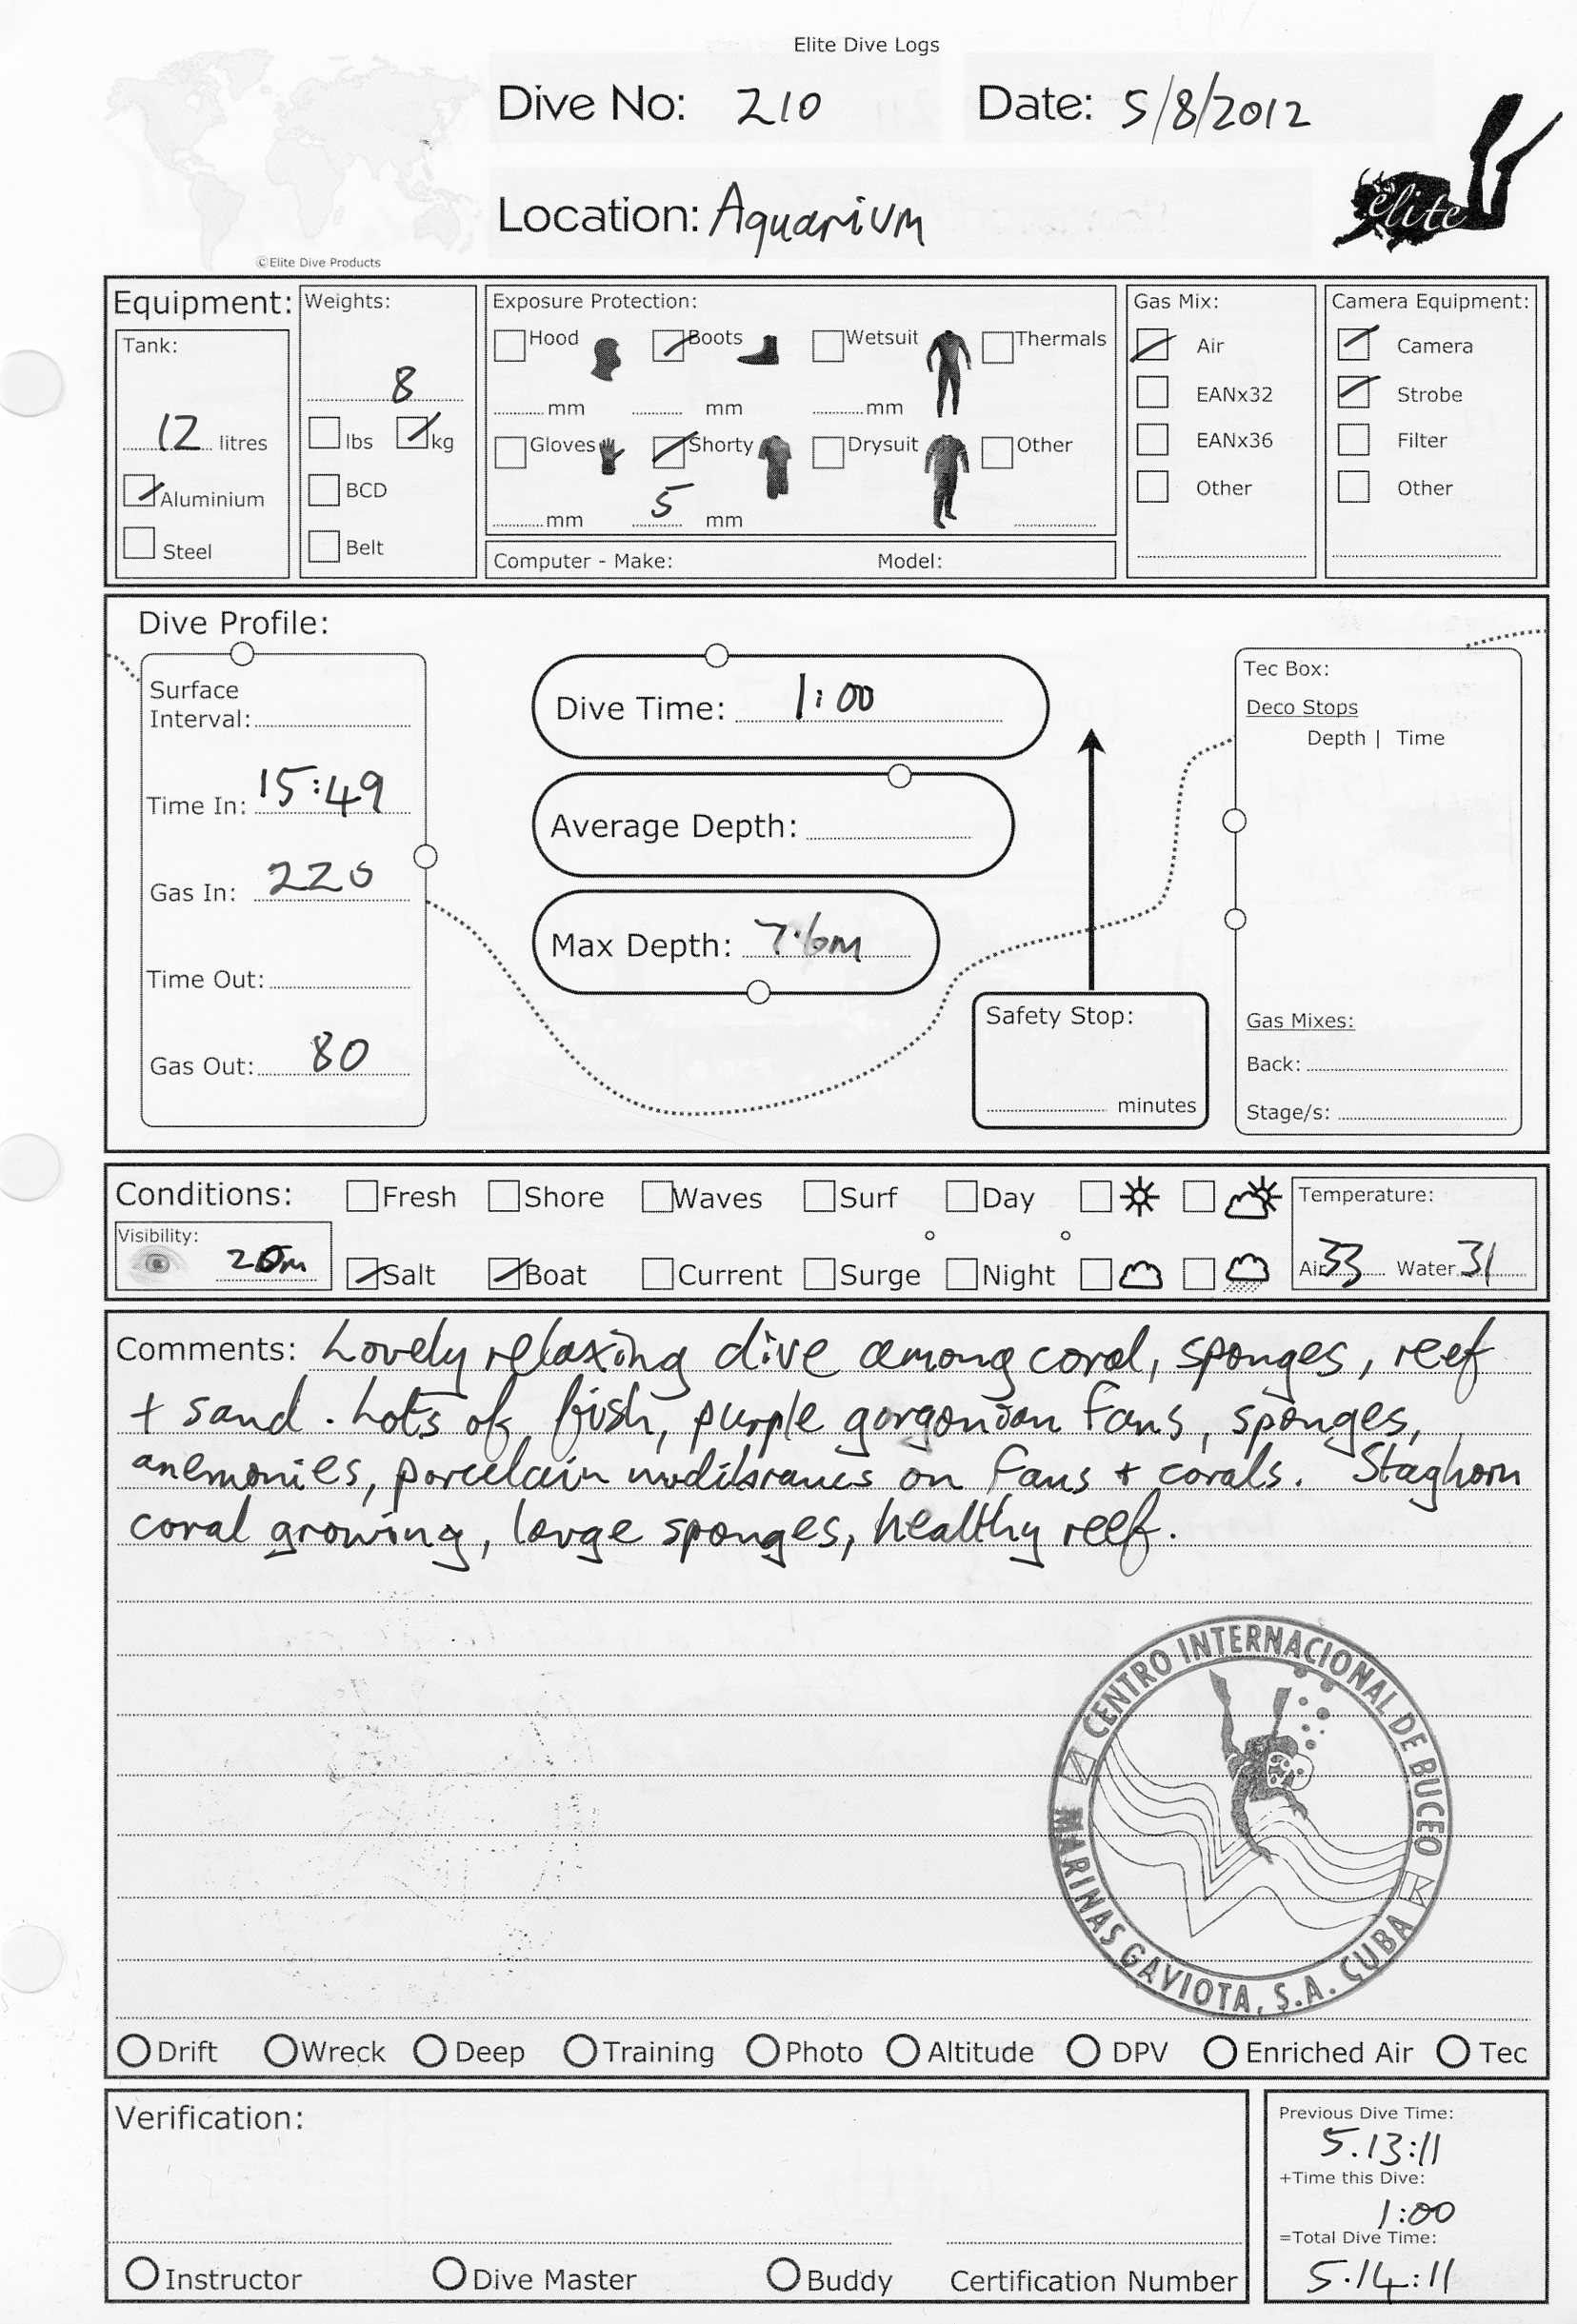 Elite Dive Logs
Dive No: 210 Date: 5/8/2012
Location: Aquarium
elite
©Elite Dive Products
Equipment: Weights: Exposure Protection: Gas Mix: Camera Equipment:
Tank:
Hood Boots Wetsuit Thermals
Air Camera
8
mm mm mm
EANx32 Strobe
12 litres
lbs kg
Gloves Shorty Drysuit Other
EANx36 Filter
Aluminium
BCD
5
Other Other
mm mm
Steel
Belt
Computer - Make: Model:
Dive Profile:
Surface
Interval:
Time In: 15:49
Gas In: 220
Time Out:
Gas Out: 80
Dive Time: 1:00
Average Depth:
Max Depth: 7.6m
Safety Stop:
minutes
Tec Box:
Deco Stops
Depth | Time
Gas Mixes:
Back:
Stage/s:
Conditions: Fresh Shore Waves Surf Day
Temperature:
Visibility:
20m
Salt Boat Current Surge Night
Air 33 Water 31
Comments: Lovely relaxing dive among coral, sponges, reef
+ sand. Lots of fish, purple gorgonian fans, sponges,
anemonies, porcelain nudibrancs on fans + corals. Staghorn
coral growing, large sponges, healthy reef.
CENTRO INTERNACIONAL DE BUCEO
MARINAS GAVIOTA, S.A. CUBA
Drift Wreck Deep Training Photo Altitude DPV Enriched Air Tec
Verification:
Instructor Dive Master Buddy Certification Number
Previous Dive Time:
5.13:11
+Time this Dive:
1:00
=Total Dive Time:
5.14:11